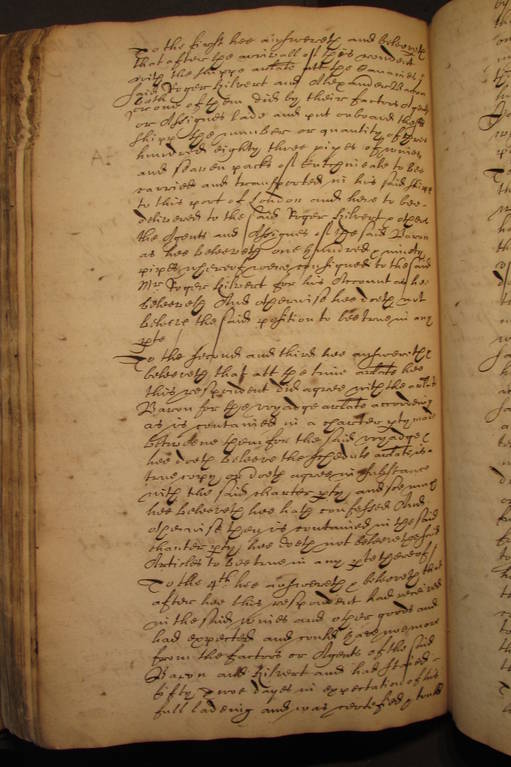 To the first hee answereth and beleeveth
that after the arrivall of this rondent
with the shippe arlate att the Canaries
said Roger Kilvert and Alexander Bacon
both
or one of them did by their factors Agents
or Assignes lade and put onboard the sd
shipp the number or quantity of three
hundred eighty three pipes of wines
and seaven packs of Cutchineale to bee
carried and transported in his said shipp
to this port of London and here to bee
delivered to the said Roger Kilvert & other
the Agents and Assignes of the said Bacon
as hee beleeveth one hundred & ninety
pipes whereof were consigned to the said
Mr Roger Kilvert for his Account as he
beleeveth And otherwise hee doeth not
beleeve the said position to bee true in any
pte
To the second and third hee answereth &
beleeveth that att the time arlate hee
this respondent did agree with the arlate
Bacon for the voyadge arlate according
as is contained in a charter pty made
betweene them for the said voyadge &
hee doeth beleeve the schedule arlate is a
true copy or doeth agree in substance
with the said charter pty and soe much
hee beleeveth hee hath confessed And
otherwise then is contained in the said
charter pty hee doeth not beleeve the said
Articles to bee true in any pte thereof
To the 4th hee answereth & beleeveth that
after hee this respondent had received
in the said wines and other goods and
had expected and could have noe more
from the factors or Agents of the said
Bacon and Kilvert and had stayed
fifty & two dayes in expectation of his
full ladeing and was certefied &